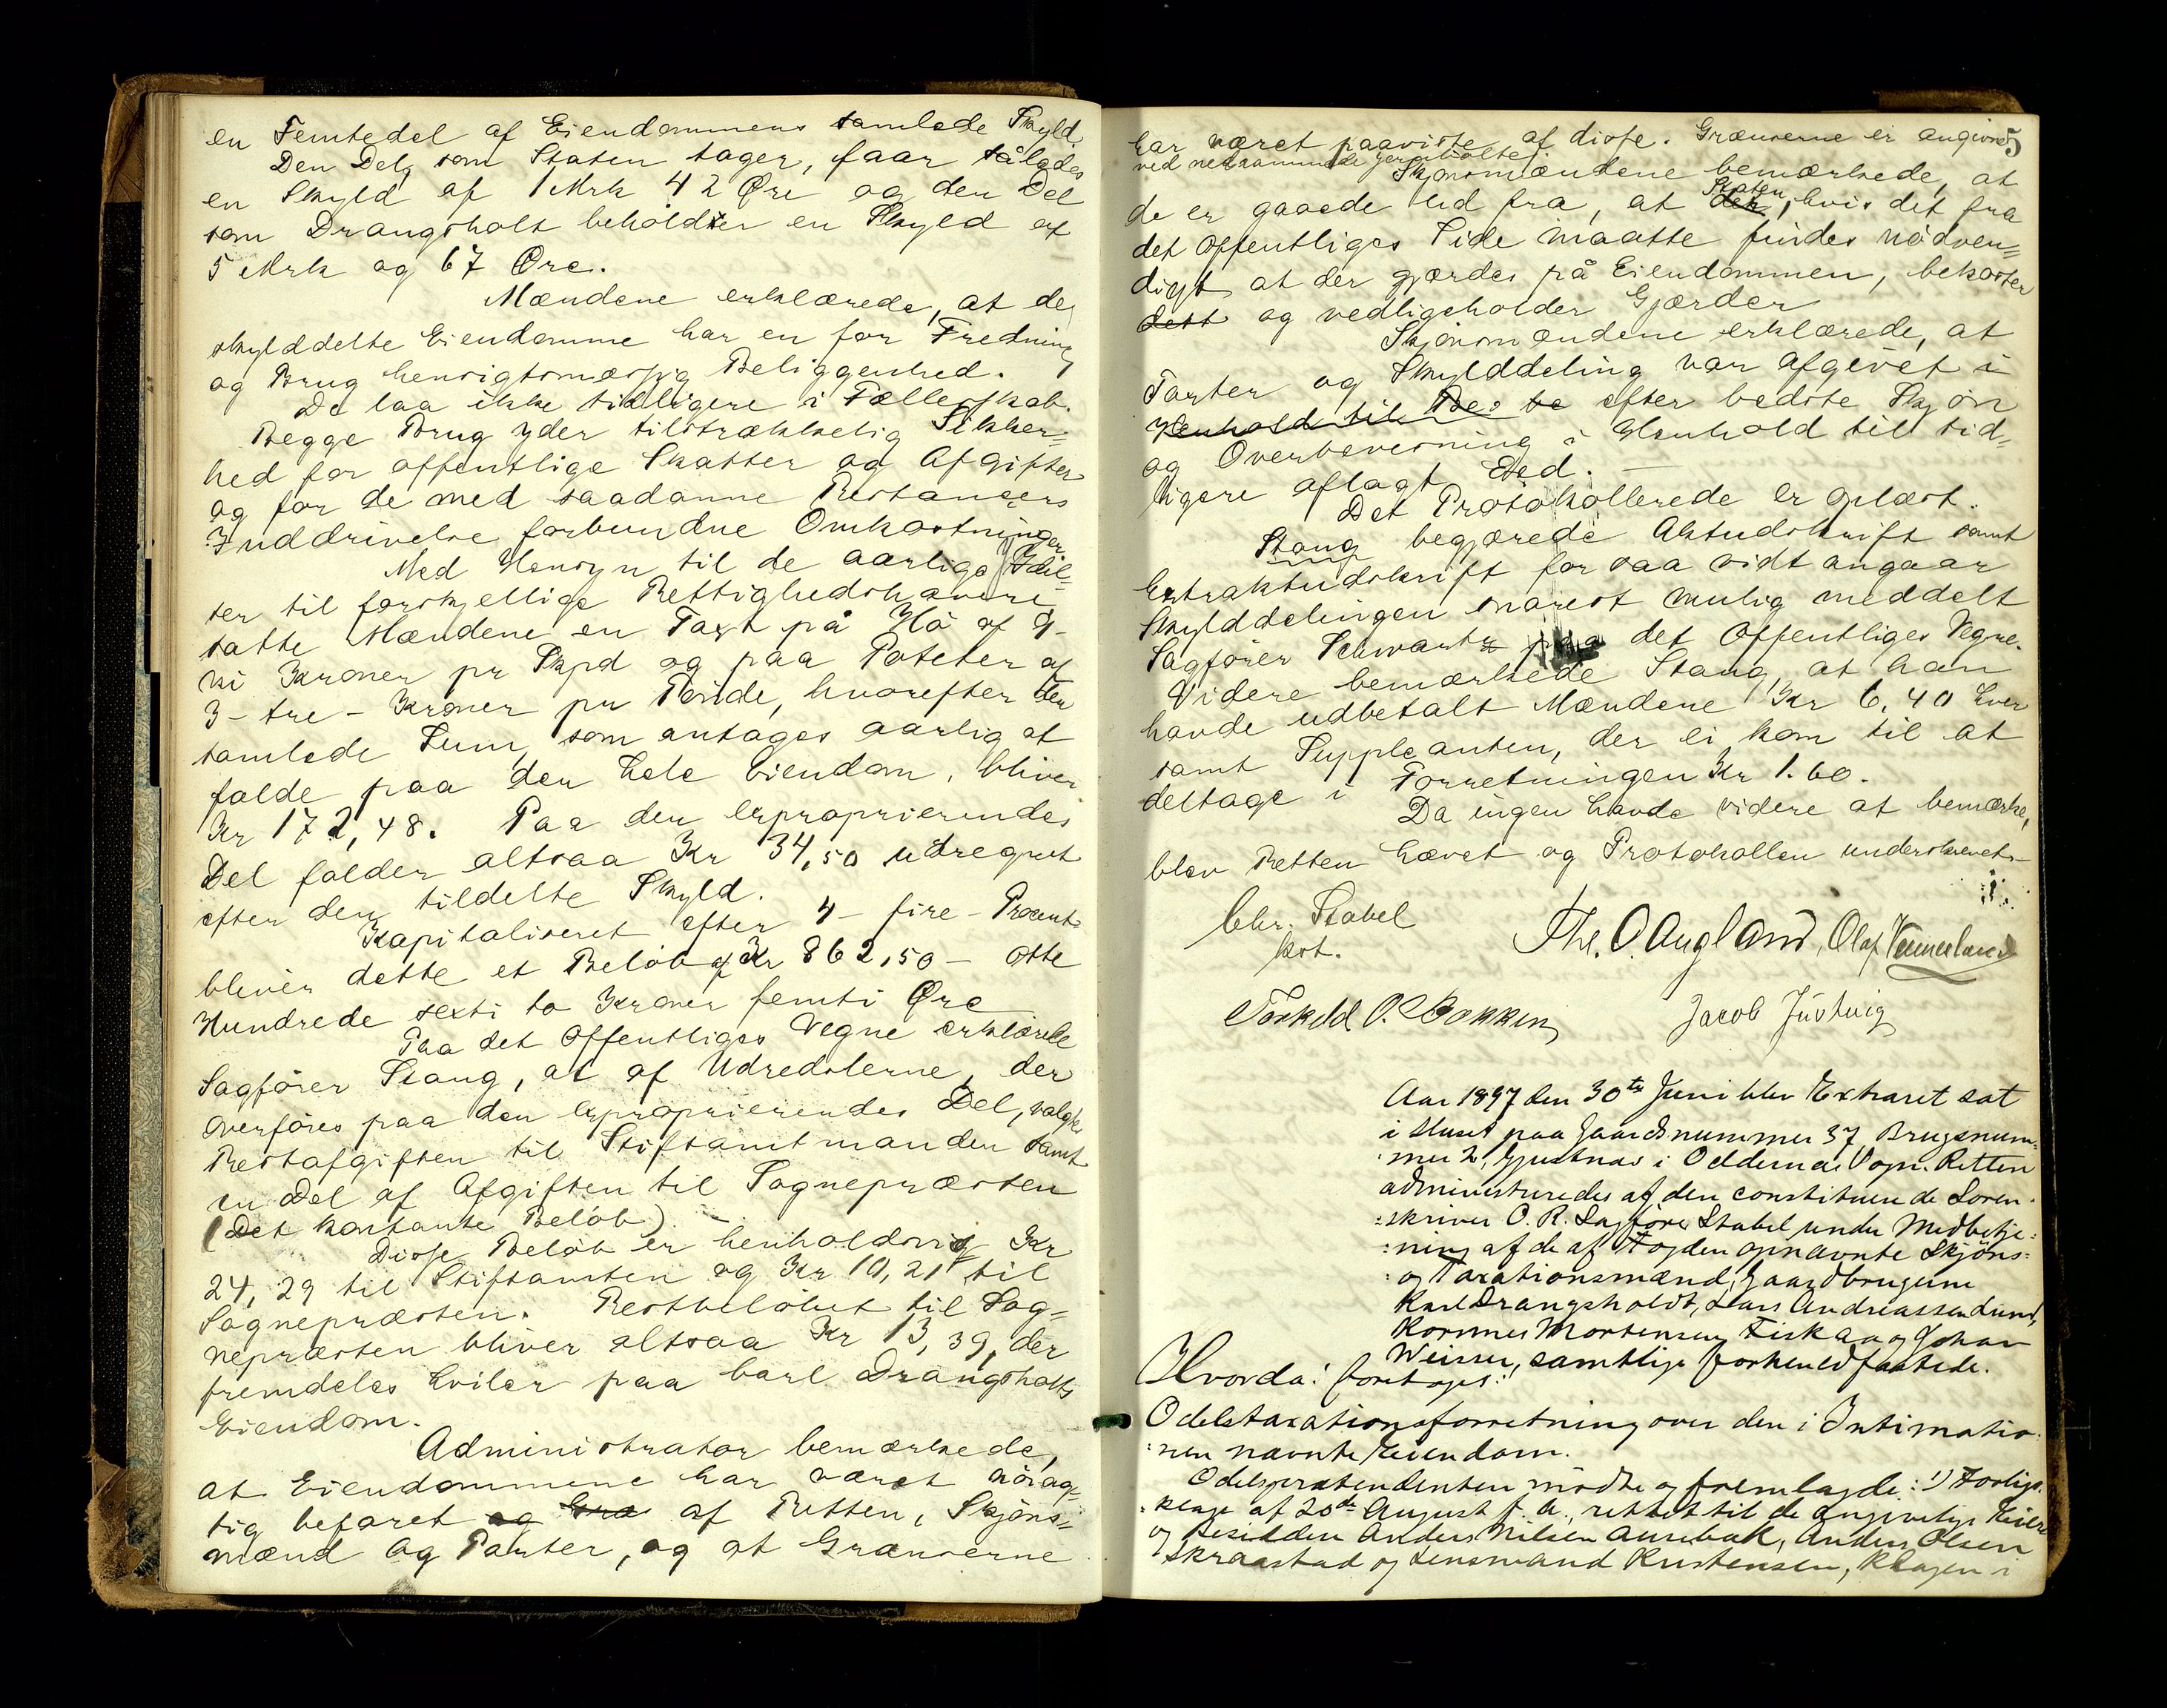 en Femtedel af Eiendommens samlede Skyld.
Den Del, som Staten tager, faar således
en Skyld af 1 Mrk 42 Øre og den Del
som Drangsholt beholder en Skyld af
5 Mrk og 67 Øre.
Mændene erklærede, at de
skylddelte Eiendomme har en for Fredning
og Brug hensigtsmæssig Beliggenhed.
De laa ikke tidligere i Fællesskab.
Begge Brug yder tilstrækkelig Sikker=
hed for offentlige Skatter og Afgifter
og for de med saadanne Restancers
Inddrivelse forbundne Omkostninger.
Med Hensyn til de aarlige
ter til forskjellige Rettighedshavere
satte Mændene en Taxt på Hö af 9-
ni Kroner pr Skpd og paa Poteter af
3 - tre - Kroner pr Tönde, hvorefter den
samlede Sum, som antages aarlig at
falde paa den hele Eiendom, bliver
Kr 172,48. Paa den exproprierendes
Del falder altsaa Kr 34,50 udregnet
efter den tildelte Skyld.
Kapitaliseret efter 4 - fire - Procent
bliver dette et Belöb af Kr 862,50 - otte
Hundrede sexti to Kroner femti Øre
Paa det Offentliges Vegne erklærede
Sagförer Stang, at af Udredslerne, der
overföres paa den exproprierendes Del, valgte
Restafgiften til Stiftamtmanden samt
en Del af Afgiften til Sognepræsten
(Det konstante Belöb). -
Disse Belöb er henholdsvis Kr
24,29 til Stiftamten og Kr 10,21 til
Sognepræsten. Restbelöbet til Sog=
nepræsten bliver altsaa Kr 13,39, der
fremdeles hviler paa Carl Drangsholts
Eiendom.
Administrator bemærkede,
at Eiendommene har været nöiag=
tig befaret og Græ af Retten, Skjöns=
mænd og Parter, og at Grænserne
5
har været paaviste af disse. Grænserne er angivne
ved nedrammede Jernbolte.
Skjönsmændene bemærkede, at
de er gaaede ud fra, at den Staten, hvis det fra
det Offentliges Side maatte findes nödven=
digt at der gjærdes på Eiendommen, bekoster
dett og vedligeholder Gjærder
Skjönsmændene erklærede, at
Taxter og Skylddeling var afgivet i
Henhold til Bes be efter bedste Skjön
og Overbevisning i Henhold til tid=
ligere aflagt Ed. -
Det Protokollerede er oplæst.
Stang begjærede Aktudskrift samt
Extraktudskrift for saa vidt angaar
Skylddelingen snarest mulig meddelt
Sagförer Schwartz paa det Offentliges Vegne.
Videre bemærkede Stang, at han
havde udbetalt Mændene Kr 6,40 hver
samt Suppleanten, der ei kom til at
deltage i Forretningen Kr 1.60.
Da ingen havde videre at bemærke,
blev Retten hævet og Protokollen underskrevet. -
Chr. Stabel
kst.
Thr. O. Augland, Olaf Vennesland
Torkeld O. Bokken
Jacob Justvig
Aar 1897 den 30te Juni blev Extraret sat
i Huset paa Gaardsnummer 37, Brugsnum=
mer 2, Gjustnæs i Oddernæs Sogn. Retten
administreredes af den constituerede Soren=
skriver O. R. Sagförer Stabel under Medbetje=
ning af de af Fogden opnævnte Skjöns=
og Taxationsmænd, Gaardbrugerne
Karl Drangsholdt, Lars Andreassen Lund,
Kornmes Mortensen Fiskaa og Johan
Weisser, samtlige forhenedfæstede.
Hvorda: foretoges:
Odelstaxationsforretning over den i Intimatio=
nen nævnte Eiendom.
Odelsprætendenten mödte og fremlagde: 1) Forligs=
klage af 20de August f. A., rettet til de angivelige Eiere
og Besiddere Anders Nilsen Aurebæk, Anders Olsen
Skraastad og Lensmand Kristensen, Klagen i